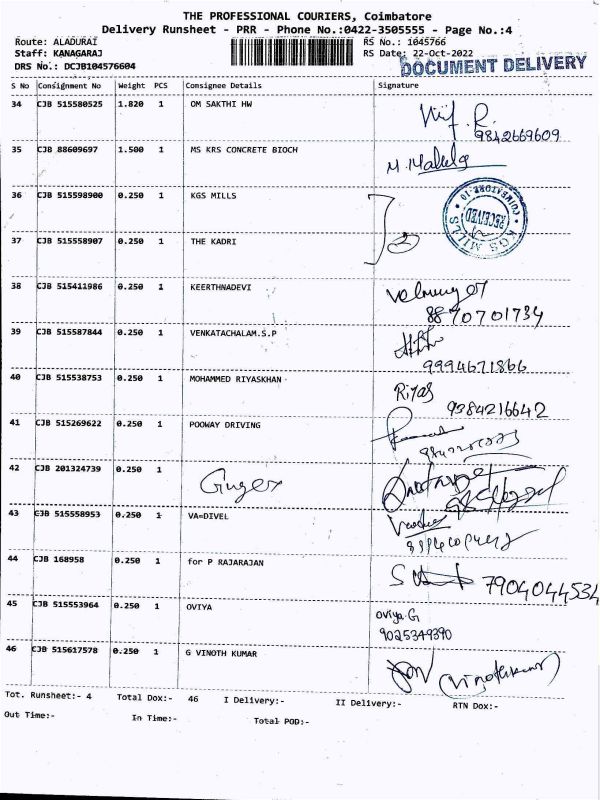 THE PROFESSIONAL COURIERS, Coimbatore
Delivery Runsheet - PRR - Phone No.:0422-3505555 - Page No.:4
Route: ALADURAI RS No.: 1045766
Staff: KANAGARAJ RS Date: 22-Oct-2022
DRS No.: DCJB104576604 DOCUMENT DELIVERY
S No Consignment No Weight PCS Consignee Details Signature
34 CJB 515580525 1.820 1 OM SAKTHI HW
R. 9842669609
35 CJB 88609697 1.500 1 MS KRS CONCRETE BIOCH
36 CJB 515598900 0.250 1 KGS MILLS
COIMBATORE-10 RECEIVED KGS MILLS
37 CJB 515558907 0.250 1 THE KADRI
2
38 CJB 515411986 0.250 1 KEERTHNADEVI
8870701734
39 CJB 515587844 0.250 1 VENKATACHALAM.S.P
9994671866
40 CJB 515538753 0.250 1 MOHAMMED RIYASKHAN
Riyas
9384216642
41 CJB 515269622 0.250 1 POOWAY DRIVING
42 CJB 201324739 0.250 1
Ginger
43 CJB 515558953 0.250 1 VA=DIVEL
44 CJB 168958 0.250 1 for P RAJARAJAN
7904044534
45 CJB 515553964 0.250 1 OVIYA
oviya.G
9025349390
46 CJB 515617578 0.250 1 G VINOTH KUMAR
(Vinothkumar)
Tot. Runsheet:- 4 Total Dox:- 46 I Delivery:- II Delivery:- RTN Dox:-
Out Time:- In Time:- Total POD:-